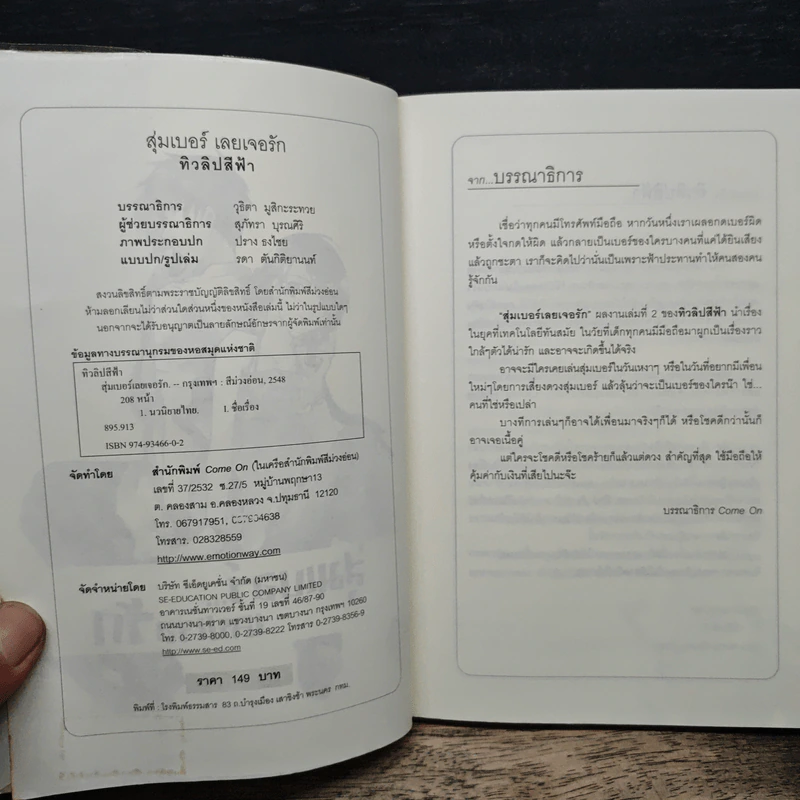 สุ่มเบอร์ เลยเจอรัก
ทิวลิปสีฟ้า
บรรณาธิการ วุธิตา มูสิกะระทวย
ผู้ช่วยบรรณาธิการ สุภัทรา บุรณศิริ
ภาพประกอบปก ปราง ธงไชย
แบบปก/รูปเล่ม รดา ตันกิติยานนท์
สงวนลิขสิทธิ์ตามพระราชบัญญัติลิขสิทธิ์ โดยสำนักพิมพ์สีม่วงอ่อน
ห้ามลอกเลียนไม่ว่าส่วนใดส่วนหนึ่งของหนังสือเล่มนี้ ไม่ว่าในรูปแบบใดๆ
นอกจากจะได้รับอนุญาตเป็นลายลักษณ์อักษรจากผู้จัดพิมพ์เท่านั้น
ข้อมูลทางบรรณานุกรมของหอสมุดแห่งชาติ
ทิวลิปสีฟ้า
สุ่มเบอร์เลยเจอรัก. -- กรุงเทพฯ : สีม่วงอ่อน, 2548
208 หน้า
1. นวนิยายไทย. I. ชื่อเรื่อง
895.913
ISBN 974-93466-0-2
จัดทำโดย สำนักพิมพ์ Come On (ในเครือสำนักพิมพ์สีม่วงอ่อน)
เลขที่ 37/2532 ซ.27/5 หมู่บ้านพฤกษา13
ต. คลองสาม อ.คลองหลวง จ.ปทุมธานี 12120
โทร. 067917951,
โทรสาร. 028328559
http://www.emotionway.com
จัดจำหน่ายโดย บริษัท ซีเอ็ดยูเคชั่น จำกัด (มหาชน)
SE-EDUCATION PUBLIC COMPANY LIMITED
อาคารเนชั่นทาวเวอร์ ชั้นที่ 19 เลขที่ 46/87-90
ถนนบางนา-ตราด แขวงบางนา เขตบางนา กรุงเทพฯ 10260
โทร. 0-2739-8000, 0-2739-8222 โทรสาร 0-2739-8356-9
http://www.se-ed.com
ราคา 149 บาท
พิมพ์ที่ : โรงพิมพ์ธรรมสาร 83 ถ.บำรุงเมือง เสาชิงช้า พระนคร กทม.
จาก...บรรณาธิการ
เชื่อว่าทุกคนมีโทรศัพท์มือถือ หากวันหนึ่งเราเผลอกดเบอร์ผิด
หรือตั้งใจกดให้ผิด แล้วกลายเป็นเบอร์ของใครบางคนที่แค่ได้ยินเสียง
แล้วถูกชะตา เราก็จะคิดไปว่านั่นเป็นเพราะฟ้าประทานทำให้คนสองคน
รู้จักกัน
"สุ่มเบอร์เลยเจอรัก" ผลงานเล่มที่ 2 ของทิวลิปสีฟ้า นำเรื่อง
ในยุคที่เทคโนโลยีทันสมัย ในวัยที่เด็กทุกคนมีมือถือมาผูกเป็นเรื่องราว
ใกล้ๆตัวได้น่ารัก และอาจจะเกิดขึ้นได้จริง
อาจจะมีใครเคยเล่นสุ่มเบอร์ในวันเหงาๆ หรือในวันที่อยากมีเพื่อน
ใหม่ๆโดยการเสี่ยงดวงสุ่มเบอร์ แล้วลุ้นว่าจะเป็นเบอร์ของใครน๊า ใช่...
คนที่ใช่หรือเปล่า
บางทีการเล่นๆก็อาจได้เพื่อนมาจริงๆก็ได้ หรือโชคดีกว่านั้นก็
อาจเจอเนื้อคู่
แต่ใครจะโชคดีหรือโชคร้ายก็แล้วแต่ดวง สำคัญที่สุด ใช้มือถือให้
คุ้มค่ากับเงินที่เสียไปนะจ๊ะ
บรรณาธิการ Come On